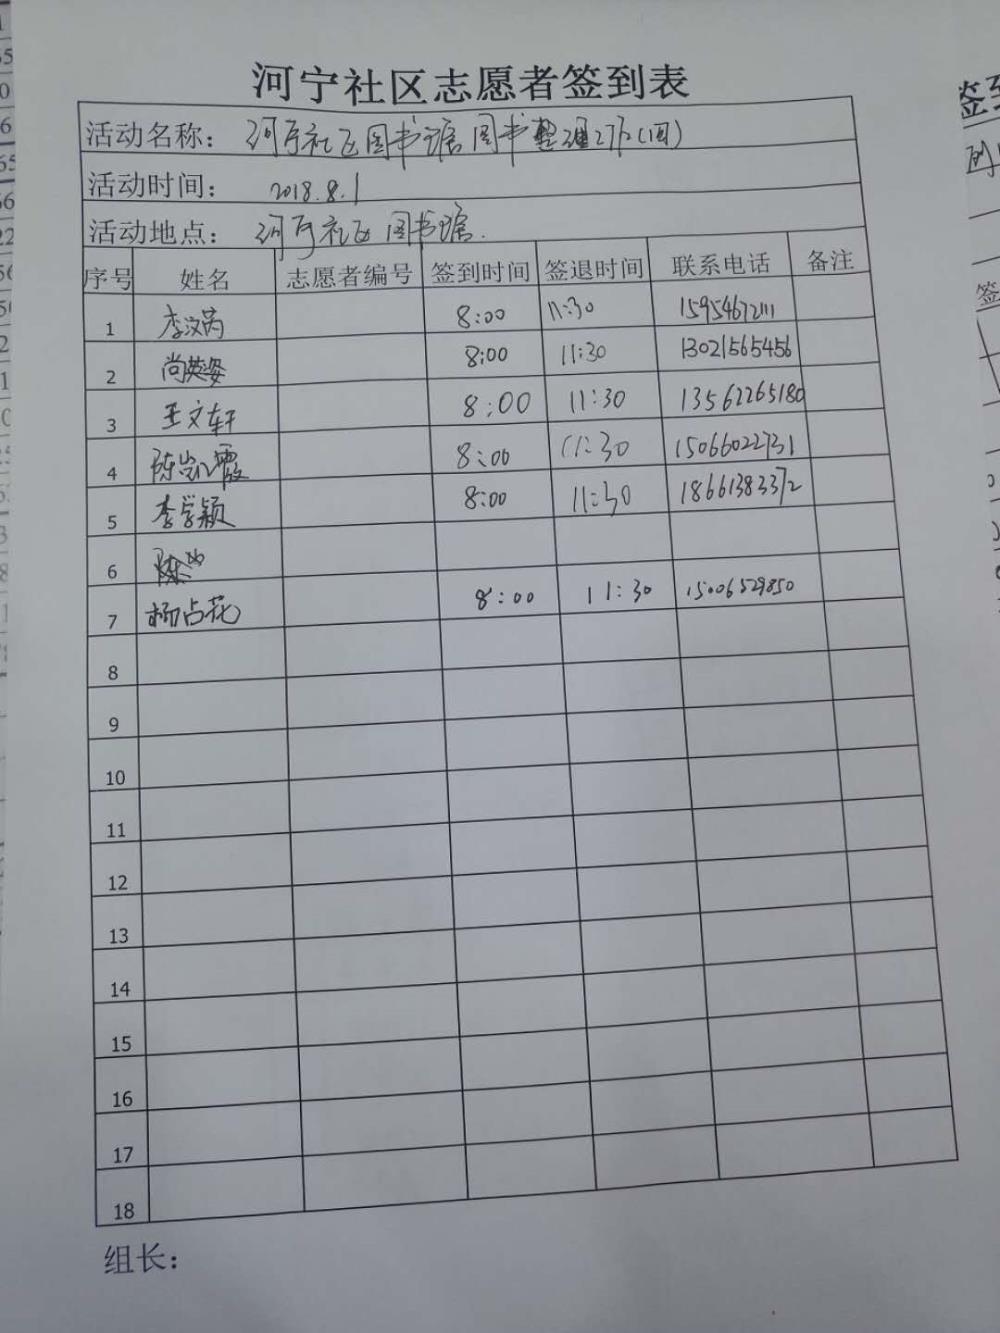 河宁社区志愿者签到表
活动名称： 河宁社区图书馆图书整理工作(四)
活动时间： 2018.8.1
活动地点： 河宁社区图书馆.
序号 姓名 志愿者编号 签到时间 签退时间 联系电话 备注
1 李汶芮 8:00 11:30 15954672111
2 尚英姿 8:00 11:30 13021565456
3 王文轩 8:00 11:30 13562265180
4 陈岩霞 8:00 11:30 15066022731
5 李学颖 8:00 11:30 18661383372
6
7 杨占花 8:00 11:30 15006529850
8
9
10
11
12
13
14
15
16
17
18
组长：